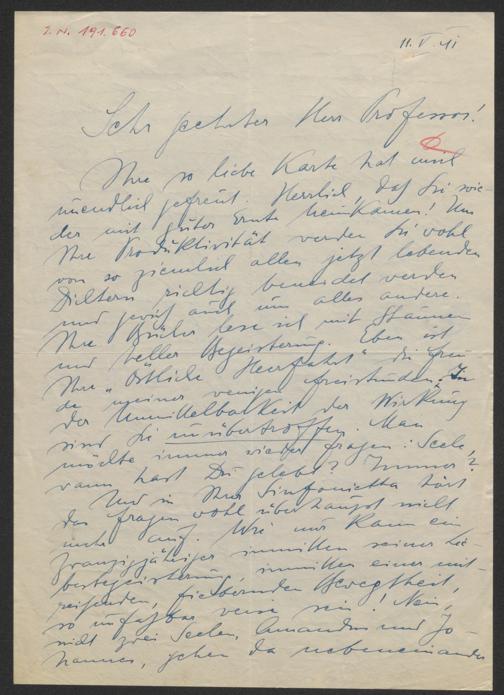 I. N. 191.660
11. V. 41
Sehr geehrter Herr Professor!
Ihre so liebe Karte hat mich
unendlich gefreut. Herrlich, daß Sie wie-
der mit guter Ernte heimkamen! Um
Ihre Produktivität werden Sie wohl
von so ziemlich allen jetzt lebenden
Dichtern richtig beneidet werden
und gewiß auch um alles andere.
Ihre Bücher lese ich mit Staunen
und heller Begeisterung. Eben ist
Ihre "Östliche Heerfahrt" die Freu-
de meiner wenigen Freistunden. In
der Unmittelbarkeit der Wirkung
sind Sie unübertroffen. Man
möchte immer wieder fragen: Seele,
wann hast Du gelebt? Immer?
Und in Ihrer Sinfonietta hört
das Fragen wohl überhaupt nicht
mehr auf. Wie nur kann ein
Zwanzigjähriger inmitten seiner Lie-
besbegeisterung, inmitten einer mit-
reißenden, fiebernden Bewegtheit,
so unfaßbar weise sein! Nein,
nicht zwei Seelen, Amandus und Jo-
hannes, gehen da nebeneinander